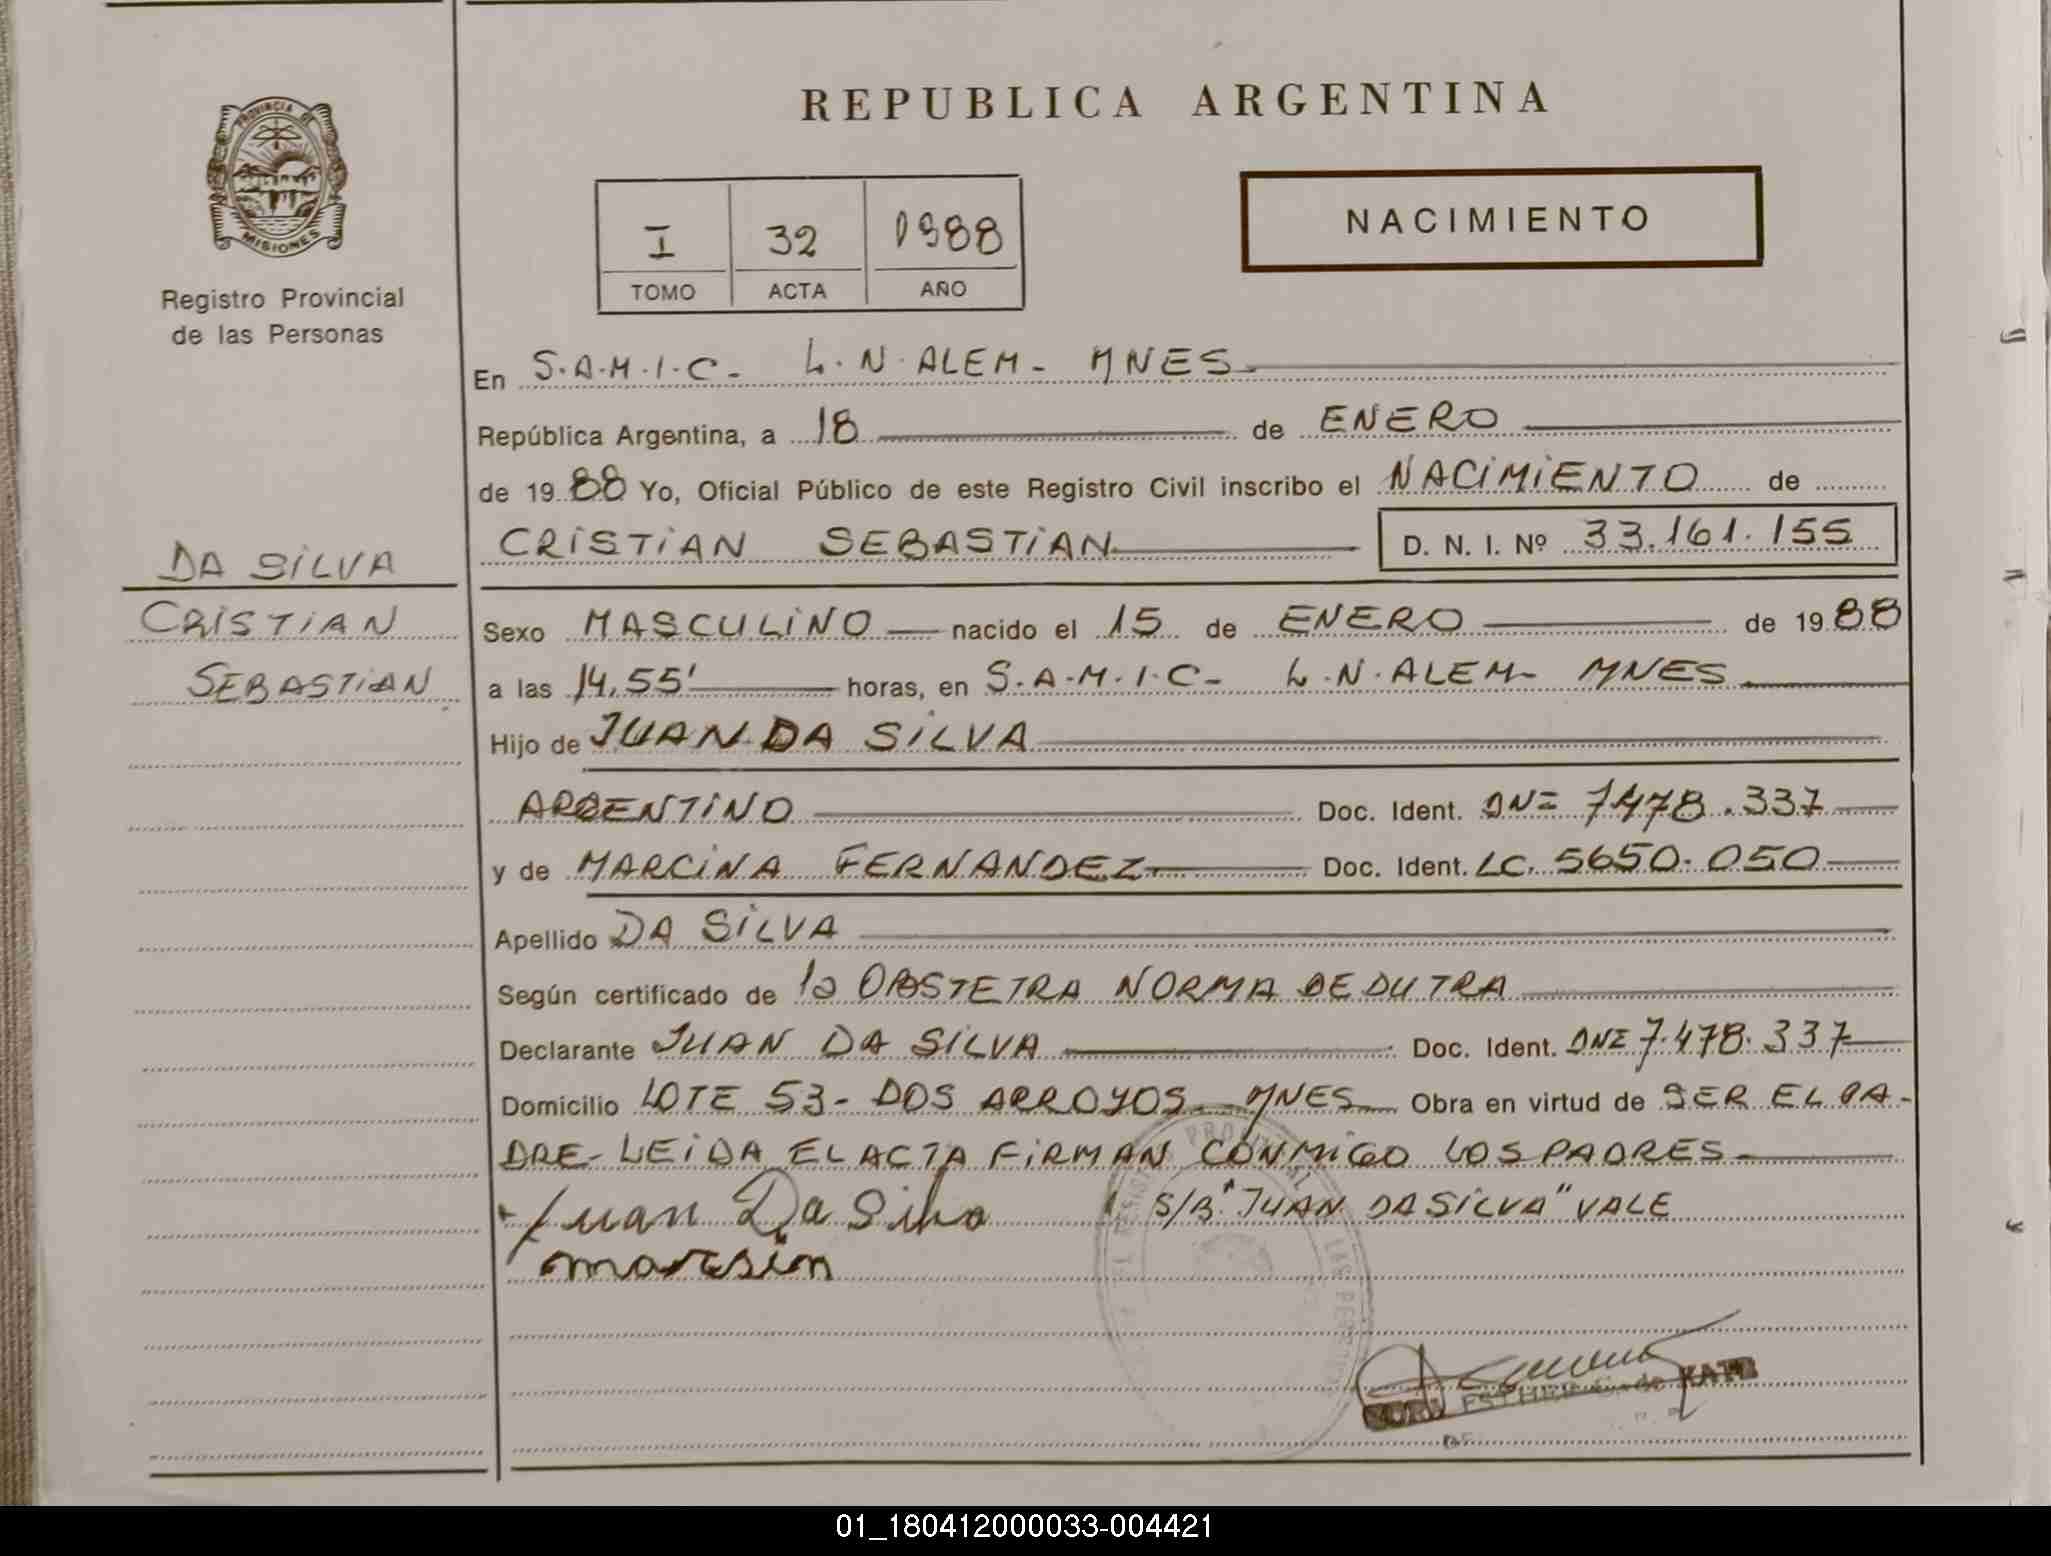 PROVINCIA DE
MISIONES
Registro Provincial
de las Personas
DA SILVA
CRISTIAN
SEBASTIAN
REPUBLICA ARGENTINA
I 32 1988
TOMO ACTA AÑO
NACIMIENTO
En S.A.M.I.C- L.N.ALEM- MNES
República Argentina, a 18 de ENERO
de 1988 Yo, Oficial Público de este Registro Civil inscribo el NACIMIENTO de
CRISTIAN SEBASTIAN D. N. I. Nº 33.161.155
Sexo MASCULINO nacido el 15 de ENERO de 1988
a las 14,55' horas, en S.A.M.I.C- L.N.ALEM- MNES
Hijo de JUAN DA SILVA
ARGENTINO Doc. Ident. DNI 7478.337
y de MARCINA FERNANDEZ Doc. Ident. LC. 5650.050
Apellido DA SILVA
Según certificado de la OBSTETRA NORMA DE DUTRA
Declarante JUAN DA SILVA Doc. Ident. DNI 7.478.337
Domicilio LOTE 53- DOS ARROYOS- MNES Obra en virtud de SER EL PA-
DRE- LEIDA EL ACTA FIRMAN CONMIGO LOS PADRES-
Juan Da Silva S/B "JUAN DA SILVA" VALE
marsin
ESTHER de KATZ
01_180412000033-004421